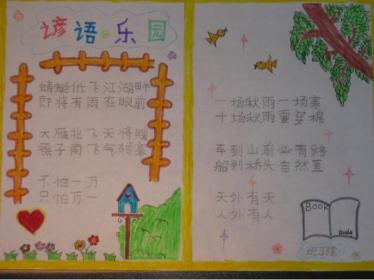 谚语乐园
蜻蜓低飞江湖畔
即将有雨在眼前
大雁北飞天将暖
燕子南飞气将寒
不怕一万
只怕万一
一场秋雨一场寒
十场秋雨要穿棉
车到山前必有路
船到桥头自然直
天外有天
人外有人
BOOK